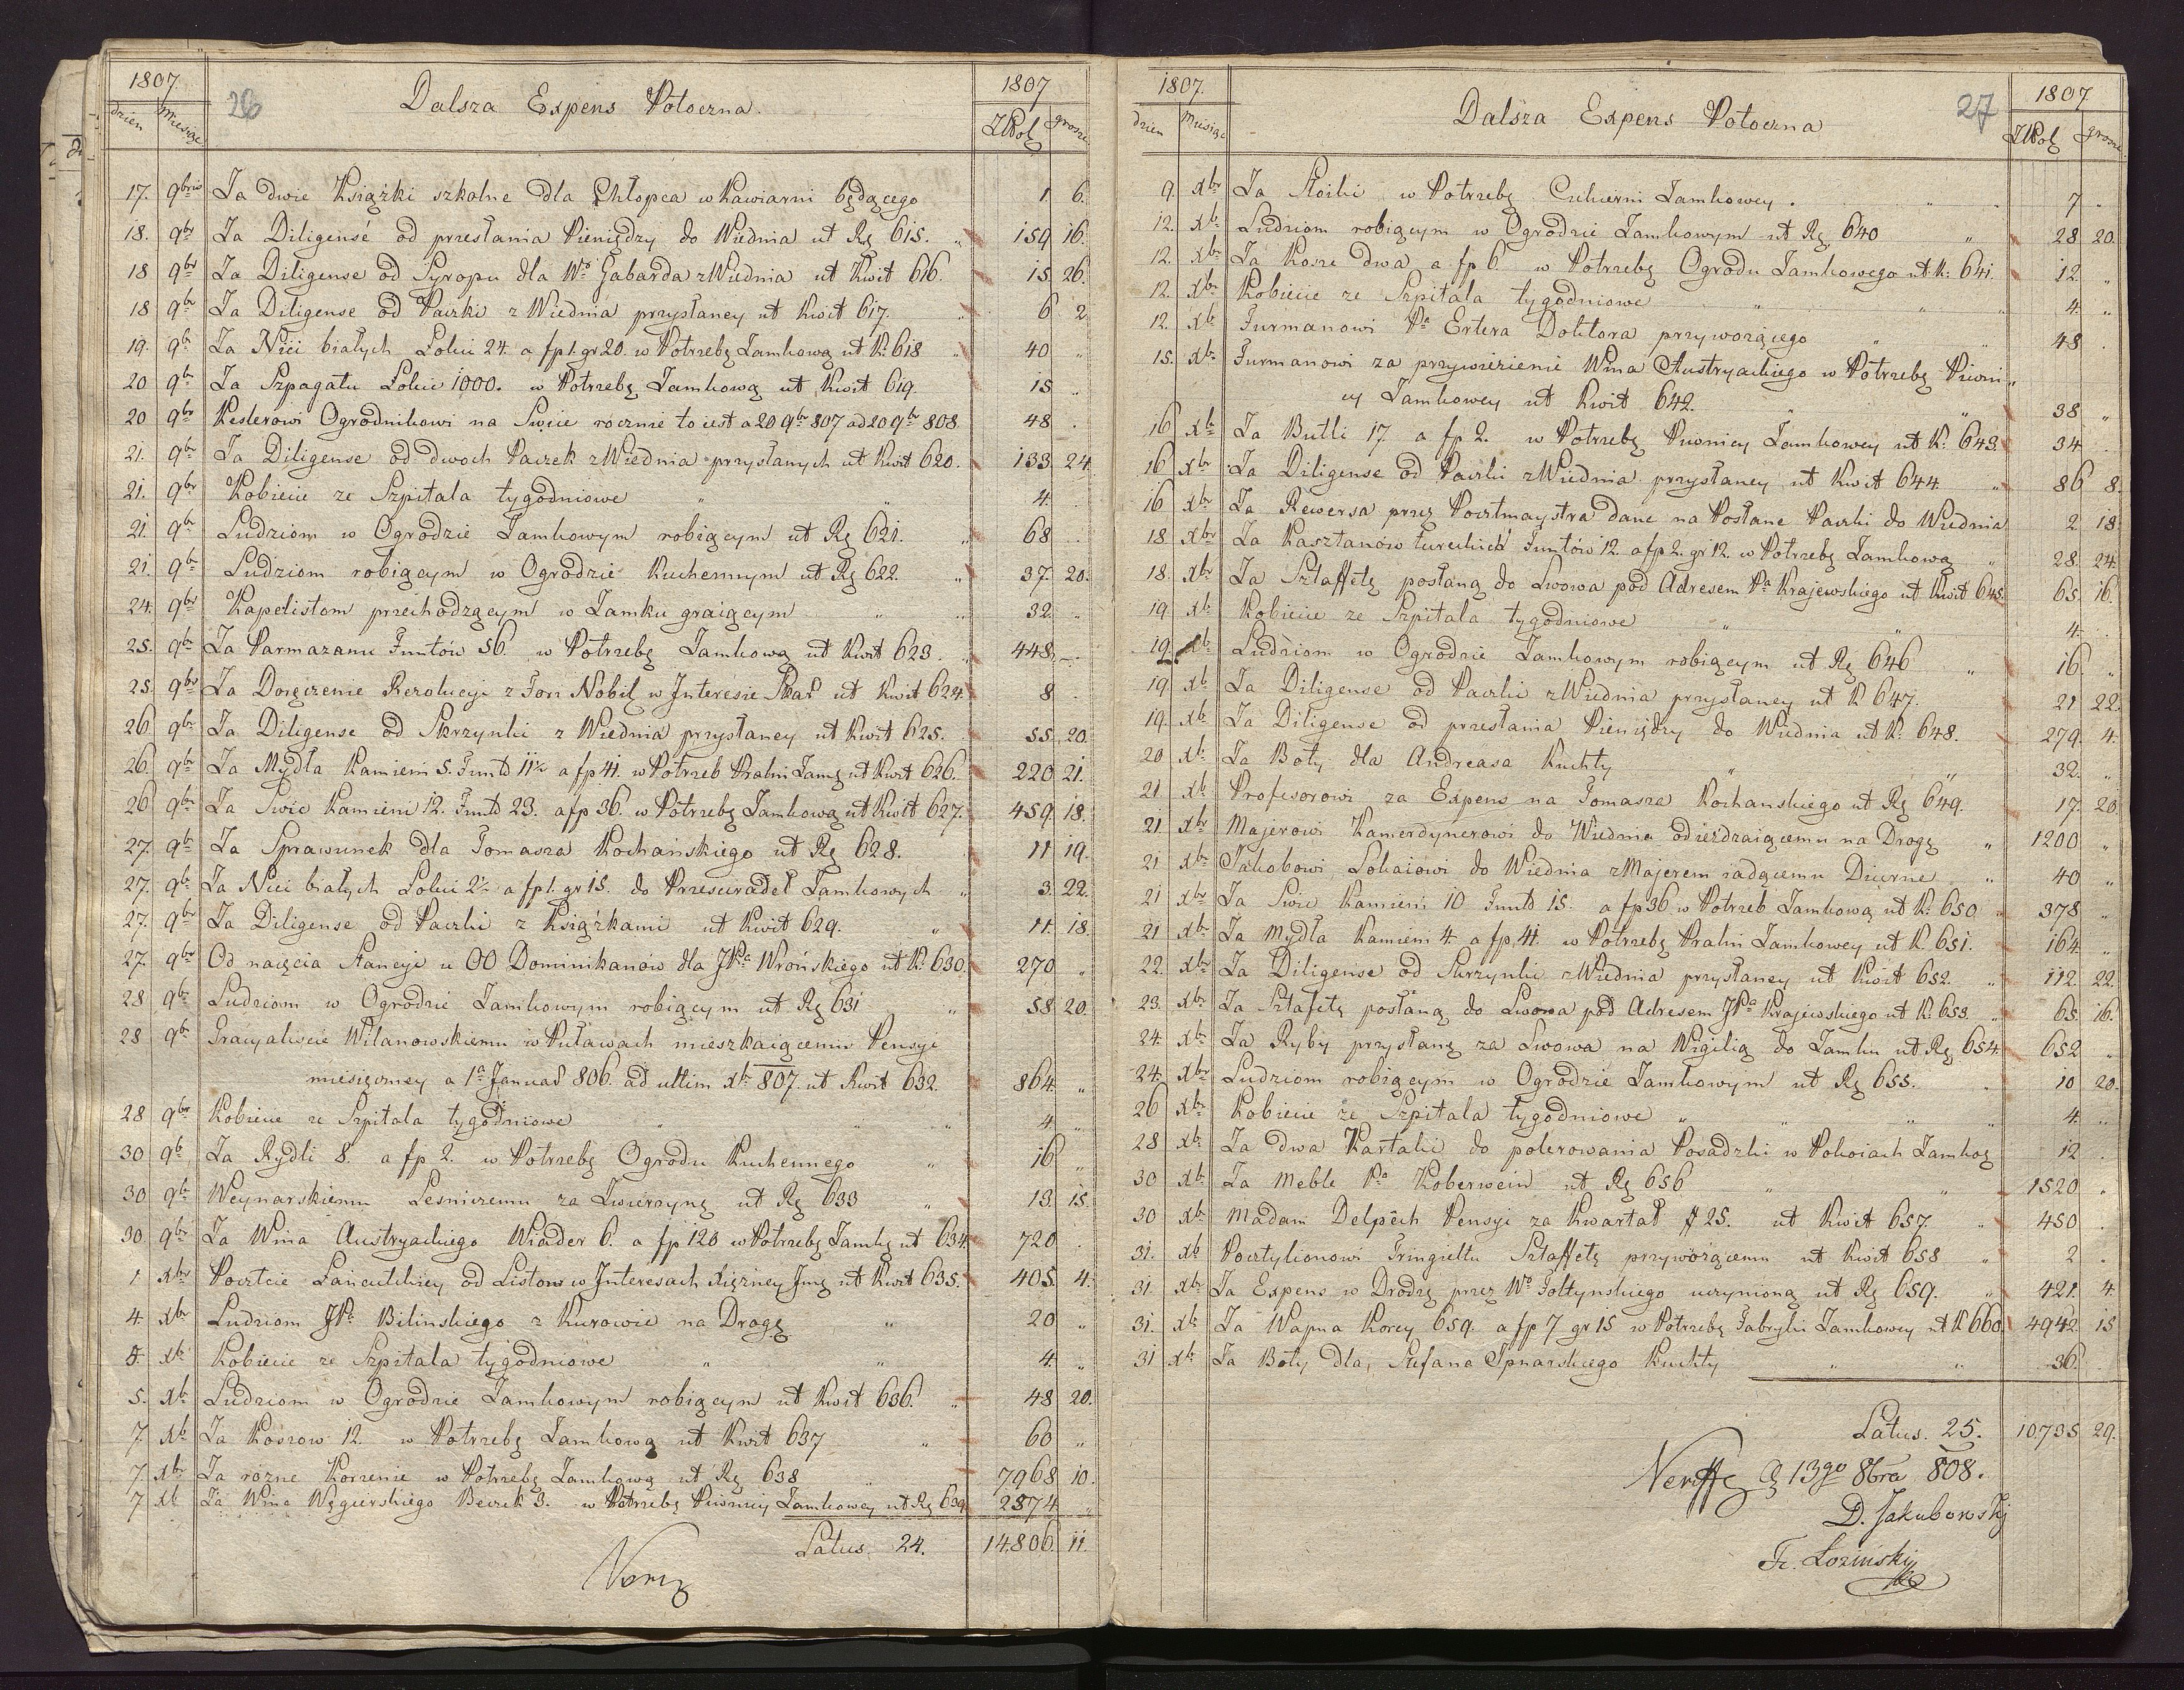 1807. 26 Dalsza Expens Potoczna. 1807
dzien Miesiąc ZłPol grosze
17. 9bris Za dwie Książki szkolne dla Chłopca w Kawiarni będącego 1. 6.
18. 9br Za Diligensé od przesłania Pieniędzy do Wiednia ut Rg 615. „ 159 16.
18 9br Za Diligense od Syropu dla Wo Gabarda z Wiednia ut Kwit 616. 15 26.
18 9br Za Diligense od Paczki z Wiednia przysłaney ut Kwit 617. „ 6 2
19. 9br Za Nici białych Łokci 24. a fp 1. gr 20. w Potrzebę Zamkową ut K: 618 „ 40 „
20 9br Za Szpagatu Łokci 1000. w Potrzebę Zamkową ut Kwit 619. 15 „
20 9br Keslerowi Ogrodnikowi na Swice rocznie to iest a 20 9br 807 ad 20 9br 808. 48 .
21. 9br Za Diligense od dwoch Paczek z Wiednia przysłanych ut Kwit 620. 133 24.
21. 9br Kobiecie ze Szpitala tygodniowe „ „ 4. .
21. 9br Ludziom w Ogrodzie Zamkowym robiącym ut Rg 621. „ 68 ..
21. 9br Ludziom robiącym w Ogrodzie Kuchennym ut Rg 622. „ 37. 20.
24. 9br Kapelistom przechodzącym w Zamku graiącym „ „ 32. „
25. 9br Za Parmazanu Funtów 56. w Potrzebę Zamkową ut Kwit 623. „ 448. —
25. 9br Za Doręczenie Rezolucyi z Fori Nobil w Interesie Skar ut Kwit 624. 8 .
26. 9br Za Diligense od Skrzynki z Wiednia przysłaney ut Kwit 625. 55. 20.
26. 9br Za Mydła Kamieni 5. Funtd 11½ a fp 41. w Potrzeb Pralni Zamg ut Kwit 626. 220 21.
26 9br Za Swic Kamieni 12. Funtd 23. a fp 36. w Potrzebę Zamkową ut Kwit 627. 459 18.
27. 9br Za Sprawunek dla Tomasza Kochańskiego ut Rg 628. 11 19.
27. 9br Za Nici białych Łokci 2½ a fp 1. gr 15. do Przescieradeł Zamkowych „ 3. 22.
27. 9br Za Diligense od Paczki z Książkami ut Kwit 629. „ 11. 18.
27. 9br Od naięcia Stancyi u OO Dominikanów dla JPa Wrońskiego ut K: 630. 270 „
28 9br Ludziom w Ogrodzie Zamkowym robiącym ut Rg 631 „ 58 20.
28 9br Gracyaliscie Wilanowskiemu w Puławach mieszkaiącemu Pensyi
miesięczney a 1a Januar 806. ad ultim Xbr 807. ut Kwit 632. 864. „
28 9br Kobiecie ze Szpitala tygodniowe „ „ 4. „
30 9br Za Rydli 8. a fp 2. w Potrzebę Ogrodu Kuchennego „ 16 „
30 9br Weynarskiemu Lesniczemu za Zwierzynę ut Rg 633 „ 13. 15.
30. 9br Za Wina Austryackiego Wiader 6. a fp 120 w Potrzebę Zamkg ut 634. 720 .
1 Xbr Poczcie Łańcutckiey od Listow w Interesach Xiężney Jmg ut Kwit 635. 405. 4.
4. Xbr Ludziom JPa Bilinskiego z Kurowic na Drogę „ 20 „
5. Xbr Kobiecie ze Szpitala tygodniowe „ „ 4. „
5. Xbr Ludziom w Ogrodzie Zamkowym robiącym ut Kwit 636. „ 48 20.
7. Xbr Za Koszow 12. w Potrzebę Zamkową ut Kwit 637 „ 60 „
7. Xbr Za rozne Korzenie w Potrzebę Zamkową ut Rg 638 7968 10.
7 Xbr Za Wina Węgierskiego Beczek 3. w Potrzebę Piwnicy Zamkowey ut Rg 639. 2574 „
Latus. 24. 14.806. 11.
1807. Dalsza Expens Potoczna 27 1807
dzien Miesiąc ZłPol grosze
9. Xbr Za Stoiki w Potrzebę Cukierni Zamkowey . „ 7 „
12. Xbr Ludziom robiącym w Ogrodzie Zamkowym ut Rg 640 „ 28 20.
12. Xbr Za Kosze dwa a fp 6. w Potrzebę Ogrodu Zamkowego ut K: 641. 12. „
12. Xbr Kobiecie ze Szpitala tygodniowe „ „ 4. „
12. Xbr Furmanowi Pa Ertera Doktora przywożącego „ „ 48 .
15. Xbr Furmanowi za przywiezienie Wina Austryackiego w Potrzebę Piwni„
cy Zamkowey ut Kwit 642. „ „ 38 „
16 Xbr Za Butli 17 a fp 2. w Potrzebę Piwnicy Zamkowey ut K: 643. 34 .
16 Xbr Za Diligense od Paczki z Wiednia przysłaney ut Kwit 644. „ 86 8.
16 Xbr Za Rewersa przez Pocztmaystra dane na Posłane Paczki do Wiednia 2 18.
18 Xbr Za Kasztanów tureckich Funtów 12. a fp 2. gr 12. w Potrzebę Zamkową „ 28. 24.
18. Xbr Za Sztaffetę posłaną do Lwowa pod Adresem Pa Krajewskiego ut Kwit 645. 65. 16.
19 Xbr Kobiecie ze Szpitala tygodniowe „ „ 4. .
19. Xbr Ludziom w Ogrodzie Zamkowym robiącym ut Rg 646 „ 16 „
19 Xbr Za Diligense od Paczki z Wiednia przysłaney ut K 647. 21 22.
19. Xbr Za Diligense od przesłania Pieniędzy do Wiednia ut K: 648. 279. 4.
20 Xbr Za Boty dla Andreasa Kuchty „ „ 32. „
21 Xbr Profesorowi za Expens na Tomasza Kochanskiego ut Rg 649. 17. 20.
21. Xbr Majerowi Kamerdynerowi do Wiednia odieżdzaiącemu na Drogę „ 1200 „
21 Xbr Jakobowi Lokaiowi do Wiednia z Majerem iadącemu Dzienne „ 40 „
21 Xbr Za Swic Kamieni 10 Funtd 15. a fp 36 w Potrzeb Zamkową ut K: 650 „ 378 „
21 Xbr Za Mydła Kamieni 4 a fp. 41. w Potrzebę Pralni Zamkowey ut K. 651. 164. „
22. Xbr Za Diligense od Skrzynki z Wiednia przysłaney ut Kwit 652. „ 112. 22.
23. Xbr Za Sztafetę posłaną do Lwowa pod Adresem JPa Krajewskiego ut K: 653. „ 65. 16.
24. Xbr Za Ryby przysłane za Lwowa na Wigilią do Zamku ut Rg 654. 652 „
24. Xbr Ludziom robiącym w Ogrodzie Zamkowym ut Rg 655. . 10 20.
26 Xbr Kobiecie ze Szpitala tygodniowe „ „ „ 4. „
28 Xbr Za dwa Kartalie do polerowania Posadzki w Pokoiach Zamkog 12 .
30 Xbr Za Meble Pa Koberwein ut Rg 656 „ „ 1520 „
30 Xbr Madam Delpech Pensyi za Kwartał # 25. ut Kwit 657. „ 450 .
31. Xbr Pocztylionowi Tringieltu Sztaffetę przywożącemu ut Kwit 658 „ 2 .
31. Xbr Za Expens w Drodze przez Wo Foltynskiego uczynioną ut Rg 659. „ 421. 4.
31. Xbr Za Wapna Korcy 659. a fp 7 gr 15 w Potrzebę Fabryki Zamkowey ut K 660. 4942. 15
31 Xbr Za Boty dla Stefana Kuchty „ „ 36. .
Latus. 25. 10.735 29.
13go 8bra 808.
D. Jakubowskj
Fr. Łozińskj